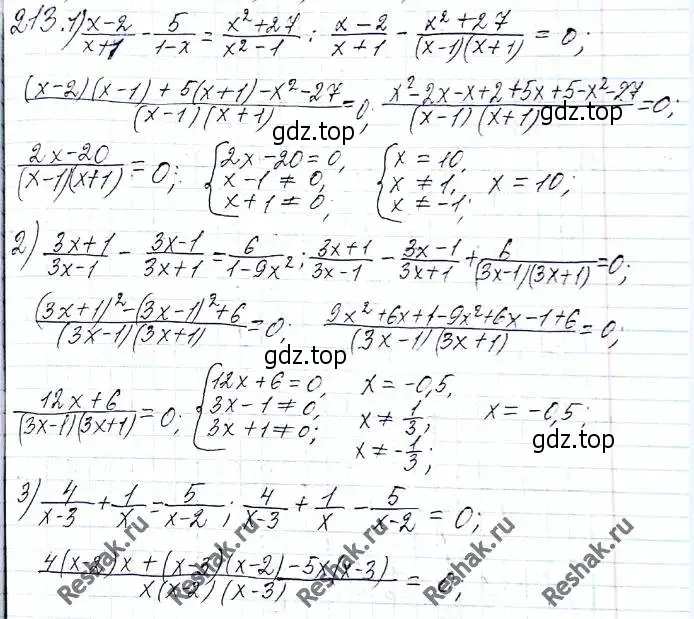 213. 1) x-2/x+1 - 5/1-x = x²+27/x²-1 ; x-2/x+1 - x²+27/(x-1)(x+1) = 0;
(x-2)(x-1)+5(x+1)-x²-27/(x-1)(x+1) = 0; x²-2x-x+2+5x+5-x²-27/(x-1)(x+1) = 0;
gdz.top
2x-20/(x-1)(x+1) = 0; { 2x-20=0, x-1≠0, x+1≠0; { x=10, x≠1, x≠-1; x=10;
gdz.top
2) 3x+1/3x-1 - 3x-1/3x+1 = 6/1-9x² ; 3x+1/3x-1 - 3x-1/3x+1 + 6/(3x-1)(3x+1) = 0;
(3x+1)²-(3x-1)²+6/(3x-1)(3x+1) = 0; 9x²+6x+1-9x²+6x-1+6/(3x-1)(3x+1) = 0;
gdz.top
12x+6/(3x-1)(3x+1) = 0; { 12x+6=0, 3x-1≠0, 3x+1≠0; x=-0,5, x≠1/3, x≠-1/3; x=-0,5;
gdz.top
3) 4/x-3 + 1/x = 5/x-2 ; 4/x-3 + 1/x - 5/x-2 = 0;
4(x-2)x+(x-3)(x-2)-5x(x-3)/x(x-2)(x-3) = 0;
Reshak.ru
Reshak.ru
Reshak.ru
Reshak.ru